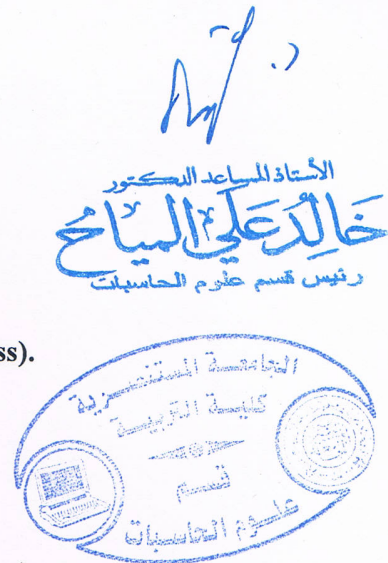 د.
الأستاذ المساعد الدكتور
خالد علي المياح
رئيس قسم علوم الحاسبات
ss).
الجامعة المستنصرية
كلية التربية
قسم
علوم الحاسبات